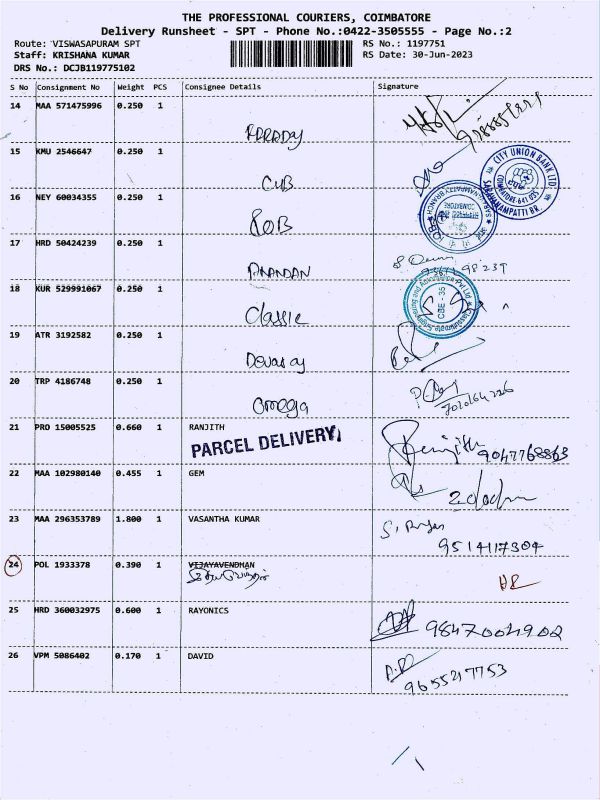 THE PROFESSIONAL COURIERS, COIMBATORE
Delivery Runsheet - SPT - Phone No.:0422-3505555 - Page No.:2
Route: VISWASAPURAM SPT RS No.: 1197751
Staff: KRISHANA KUMAR RS Date: 30-Jun-2023
DRS No.: DCJB119775102
S No Consignment No Weight PCS Consignee Details Signature
14 MAA 571475996 0.250 1
15 KMU 2546647 0.250 1
CUB
CITY UNION BANK LTD.
SARAVANAMPATTI BR
COIMBATORE-641 035
16 NEY 60034355 0.250 1
17 HRD 50424239 0.250 1
ANANDAN
18 KUR 529991067 0.250 1
Classic
CBE - 35
19 ATR 3192582 0.250 1
Devaraj
20 TRP 4186748 0.250 1
Omega
21 PRO 15005525 0.660 1 RANJITH Renjith
PARCEL DELIVERY 9047768863
22 MAA 102980140 0.455 1 GEM
23 MAA 296353789 1.800 1 VASANTHA KUMAR
9514117304
24 POL 1933378 0.390 1 VIJAYAVENDHAN
25 HRD 360032975 0.600 1 RAYONICS
9847004902
26 VPM 5086402 0.170 1 DAVID
9655217753